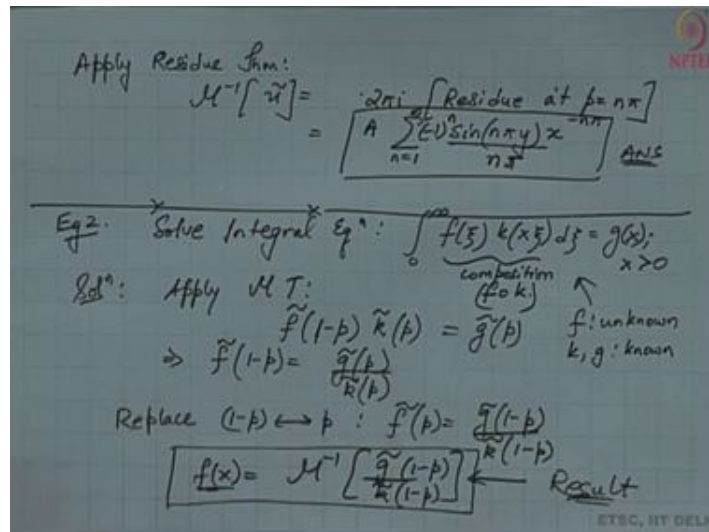 NPTEL
Apply Residue Thm:
M⁻¹[ũ] = 2πi [Residue at p = nπ]
= A ∑_{n=1}^{∞} (-1)ⁿ sin(nπy)/nπ x^{-nπ} ANS
Eg2. Solve Integral Eqⁿ: ∫₀^∞ f(ξ) k(xξ) dξ = g(x);
x>0
composition
(f o k)
Solⁿ: Apply M T:
f̃(1-p) k̃(p) = g̃(p)
f: unknown
k, g: known
⇒ f̃(1-p) = g̃(p)/k̃(p)
Replace (1-p) ↔ p : f̃(p) = g̃(1-p)/k̃(1-p)
f(x) = M⁻¹[g̃(1-p)/k̃(1-p)] ← Result
ETSC, IIT DELHI